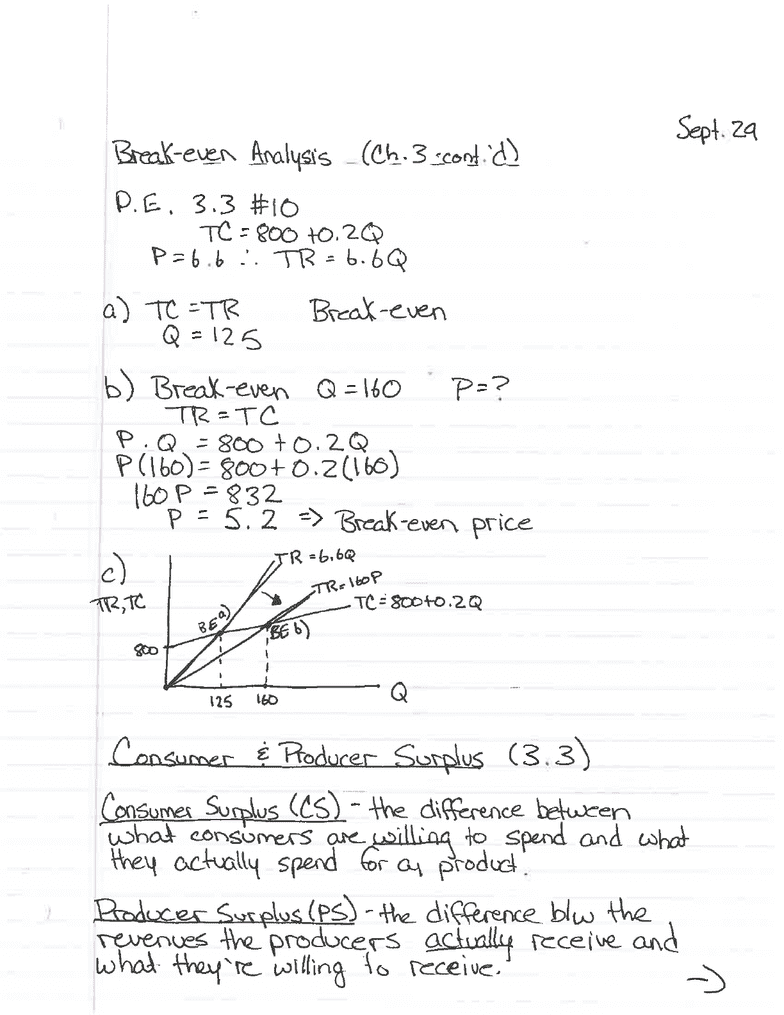 Sept. 29
Break-even Analysis (Ch. 3 cont.'d)
P.E. 3.3 #10
TC = 800 + 0.2Q
P = 6.6 ∴ TR = 6.6Q
a) TC = TR Break-even
Q = 125
b) Break-even Q = 160 P = ?
TR = TC
P · Q = 800 + 0.2Q
P(160) = 800 + 0.2(160)
160P = 832
P = 5.2 => Break-even price
c)
TR, TC
TR = 6.6Q
TR = 160P
TC = 800 + 0.2Q
BE a)
BE b)
800
125 160 Q
Consumer & Producer Surplus (3.3)
Consumer Surplus (CS) - the difference between
what consumers are willing to spend and what
they actually spend for a product.
Producer Surplus (PS) - the difference b/w the
revenues the producers actually receive and
what they're willing to receive.
→